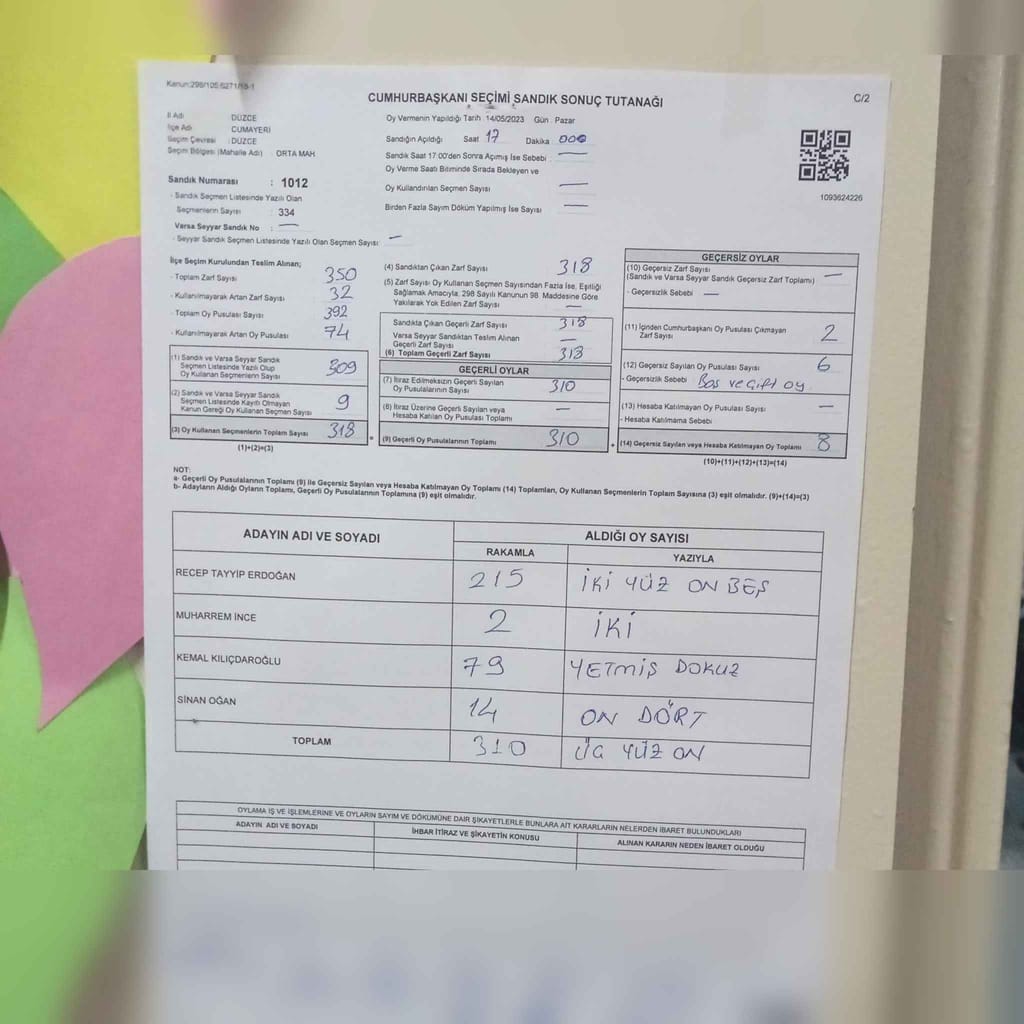 Kanun:298/105;6271/18-1
CUMHURBAŞKANI SEÇİMİ SANDIK SONUÇ TUTANAĞI
C/2
İl Adı DÜZCE
İlçe Adı CUMAYERİ
Seçim Çevresi : DÜZCE
Seçim Bölgesi (Mahalle Adı) : ORTA MAH
Sandık Numarası : 1012
- Sandık Seçmen Listesinde Yazılı Olan
Seçmenlerin Sayısı : 334
Varsa Seyyar Sandık No : —
- Seyyar Sandık Seçmen Listesinde Yazılı Olan Seçmen Sayısı —
Oy Vermenin Yapıldığı Tarih 14/05/2023 Gün Pazar
Sandığın Açıldığı Saat 17 Dakika 000
Sandık Saat 17:00'den Sonra Açımış İse Sebebi —
Oy Verme Saati Bitiminde Sırada Bekleyen ve
Oy Kullandırılan Seçmen Sayısı —
Birden Fazla Sayım Döküm Yapılmış İse Sayısı —
1093624226
İlçe Seçim Kurulundan Teslim Alınan;
- Toplam Zarf Sayısı 350
- Kullanılmayarak Artan Zarf Sayısı 32
- Toplam Oy Pusulası Sayısı 392
- Kullanılmayarak Artan Oy Pusulası 74
(1) Sandık ve Varsa Seyyar Sandık
Seçmen Listesinde Yazılı Olup
Oy Kullanan Seçmenlerin Sayısı 309
(2) Sandık ve Varsa Seyyar Sandık
Seçmen Listesinde Kayıtlı Olmayan
Kanun Gereği Oy Kullanan Seçmen Sayısı 9
(3) Oy Kullanan Seçmenlerin Toplam Sayısı 318
(1)+(2)=(3)
(4) Sandıktan Çıkan Zarf Sayısı 318
(5) Zarf Sayısı Oy Kullanan Seçmen Sayısından Fazla İse, Eşitliği
Sağlamak Amacıyla, 298 Sayılı Kanunun 98. Maddesine Göre
Yakılarak Yok Edilen Zarf Sayısı —
Sandıkta Çıkan Geçerli Zarf Sayısı 318
Varsa Seyyar Sandıktan Teslim Alınan
Geçerli Zarf Sayısı —
(6) Toplam Geçerli Zarf Sayısı 318
GEÇERLİ OYLAR
(7) İtiraz Edilmeksizin Geçerli Sayılan
Oy Pusulalarının Sayısı 310
(8) İtiraz Üzerine Geçerli Sayılan veya
Hesaba Katılan Oy Pusulası Toplamı —
(9) Geçerli Oy Pusulalarının Toplamı 310
GEÇERSİZ OYLAR
(10) Geçersiz Zarf Sayısı
(Sandık ve Varsa Seyyar Sandık Geçersiz Zarf Toplamı) —
- Geçersizlik Sebebi —
(11) İçinden Cumhurbaşkanı Oy Pusulası Çıkmayan
Zarf Sayısı 2
(12) Geçersiz Sayılan Oy Pusulası Sayısı 6
- Geçersizlik Sebebi Boş ve çift oy
(13) Hesaba Katılmayan Oy Pusulası Sayısı —
- Hesaba Katılmama Sebebi
(14) Geçersiz Sayılan veya Hesaba Katılmayan Oy Toplamı 8
(10)+(11)+(12)+(13)=(14)
NOT:
a- Geçerli Oy Pusulalarının Toplamı (9) ile Geçersiz Sayılan veya Hesaba Katılmayan Oy Toplamı (14) Toplamları, Oy Kullanan Seçmenlerin Toplam Sayısına (3) eşit olmalıdır. (9)+(14)=(3)
b- Adayların Aldığı Oyların Toplamı, Geçerli Oy Pusulalarının Toplamına (9) eşit olmalıdır.
ADAYIN ADI VE SOYADI ALDIĞI OY SAYISI
RAKAMLA YAZIYLA
RECEP TAYYİP ERDOĞAN 215 İKİ YÜZ ON BEŞ
MUHARREM İNCE 2 İKİ
KEMAL KILIÇDAROĞLU 79 YETMİŞ DOKUZ
SİNAN OĞAN 14 ON DÖRT
TOPLAM 310 ÜÇ YÜZ ON
OYLAMA İŞ VE İŞLEMLERİNE VE OYLARIN SAYIM VE DÖKÜMÜNE DAİR ŞİKAYETLERLE BUNLARA AİT KARARLARIN NELERDEN İBARET BULUNDUKLARI
ADAYIN ADI VE SOYADI İHBAR İTİRAZ VE ŞİKAYETİN KONUSU ALINAN KARARIN NEDEN İBARET OLDUĞU